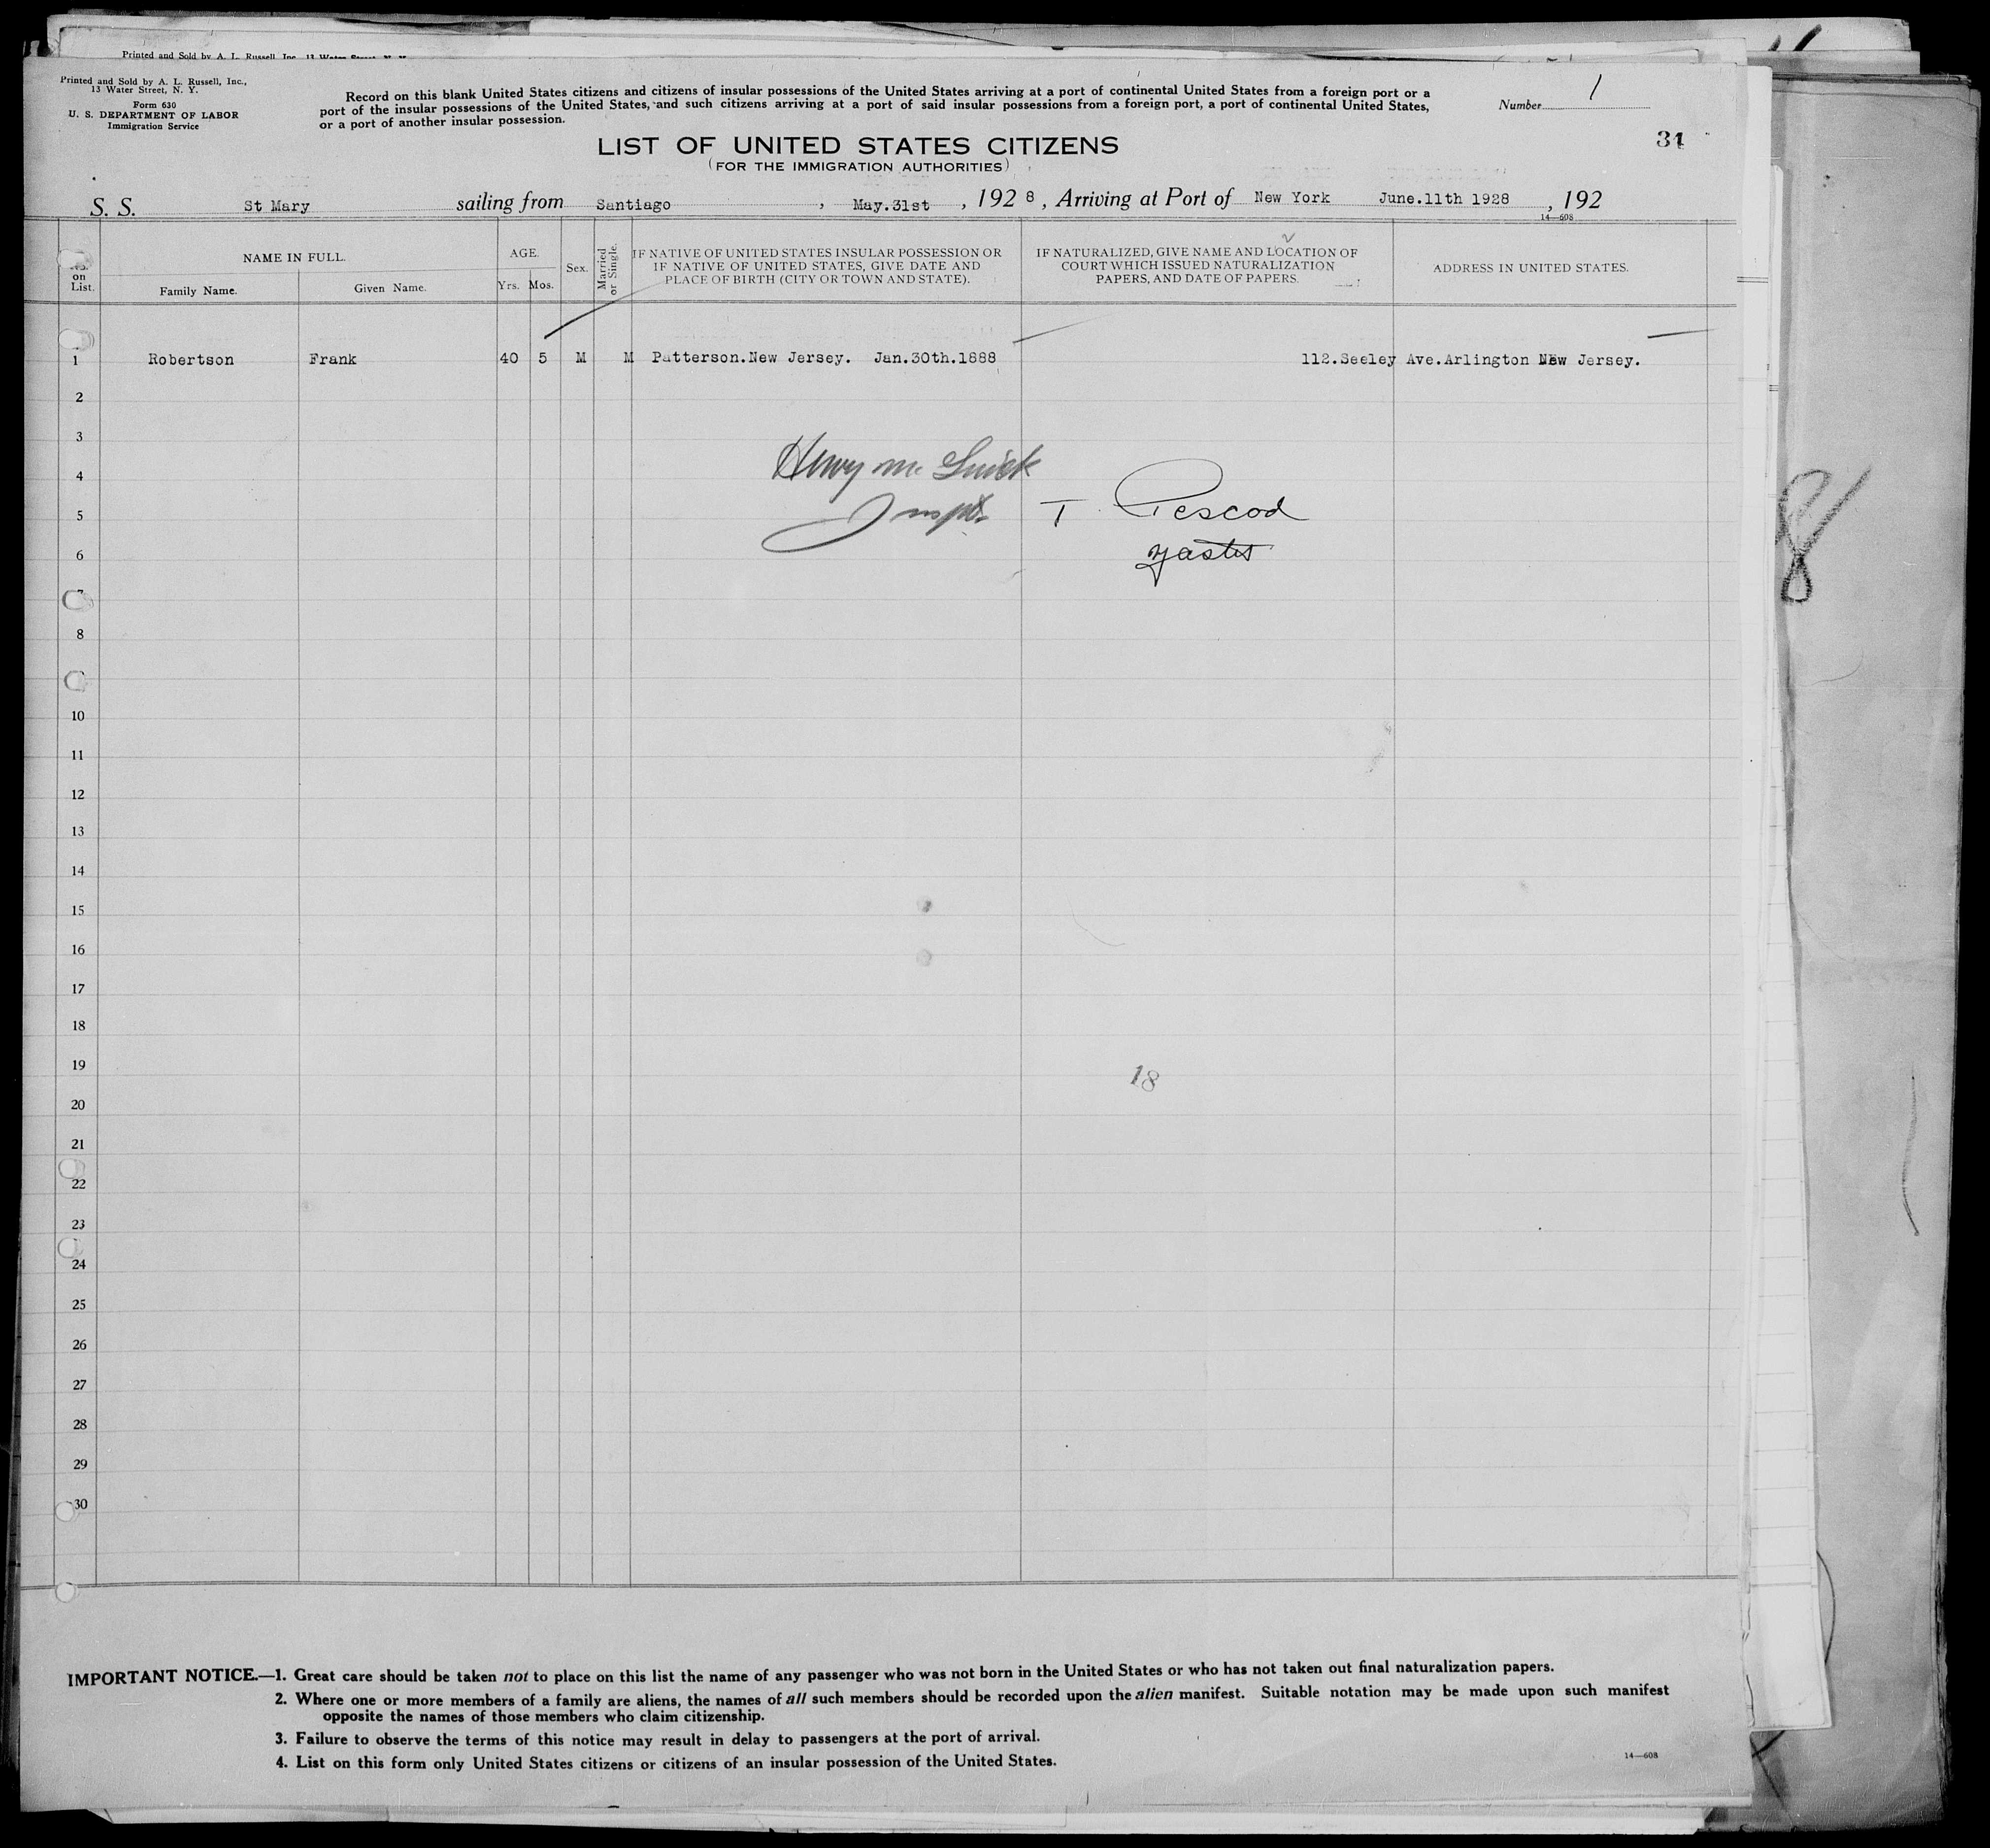 Printed and Sold by A. L. Russell, Inc. 13 Water Street, N. Y.
Printed and Sold by A. L. Russell, Inc.,
13 Water Street, N. Y.
Form 630
U. S. DEPARTMENT OF LABOR
Immigration Service
Record on this blank United States citizens and citizens of insular possessions of the United States arriving at a port of continental United States from a foreign port or a
port of the insular possessions of the United States, and such citizens arriving at a port of said insular possessions from a foreign port, a port of continental United States,
or a port of another insular possession.
Number 1
31
LIST OF UNITED STATES CITIZENS
(FOR THE IMMIGRATION AUTHORITIES)
S. S. St Mary sailing from Santiago , May.31st , 192 8 , Arriving at Port of New York June.11th 1928 , 192
14—608
No. on List.
NAME IN FULL.
Family Name.
Given Name.
AGE.
Yrs.
Mos.
Sex.
Married or Single.
IF NATIVE OF UNITED STATES INSULAR POSSESSION OR
IF NATIVE OF UNITED STATES, GIVE DATE AND
PLACE OF BIRTH (CITY OR TOWN AND STATE).
IF NATURALIZED, GIVE NAME AND LOCATION OF
COURT WHICH ISSUED NATURALIZATION
PAPERS, AND DATE OF PAPERS.
ADDRESS IN UNITED STATES.
1 Robertson Frank 40 5 M M Patterson.New Jersey. Jan.30th.1888 112.Seeley Ave.Arlington New Jersey.
2
3
4
Henry Mc
5
Inspt.
T. Pescod
6
8
10
11
12
13
14
15
16
17
18
19
18
20
21
22
23
24
25
26
27
28
29
30
IMPORTANT NOTICE.—1. Great care should be taken not to place on this list the name of any passenger who was not born in the United States or who has not taken out final naturalization papers.
2. Where one or more members of a family are aliens, the names of all such members should be recorded upon the alien manifest. Suitable notation may be made upon such manifest
opposite the names of those members who claim citizenship.
3. Failure to observe the terms of this notice may result in delay to passengers at the port of arrival.
4. List on this form only United States citizens or citizens of an insular possession of the United States.
14—608